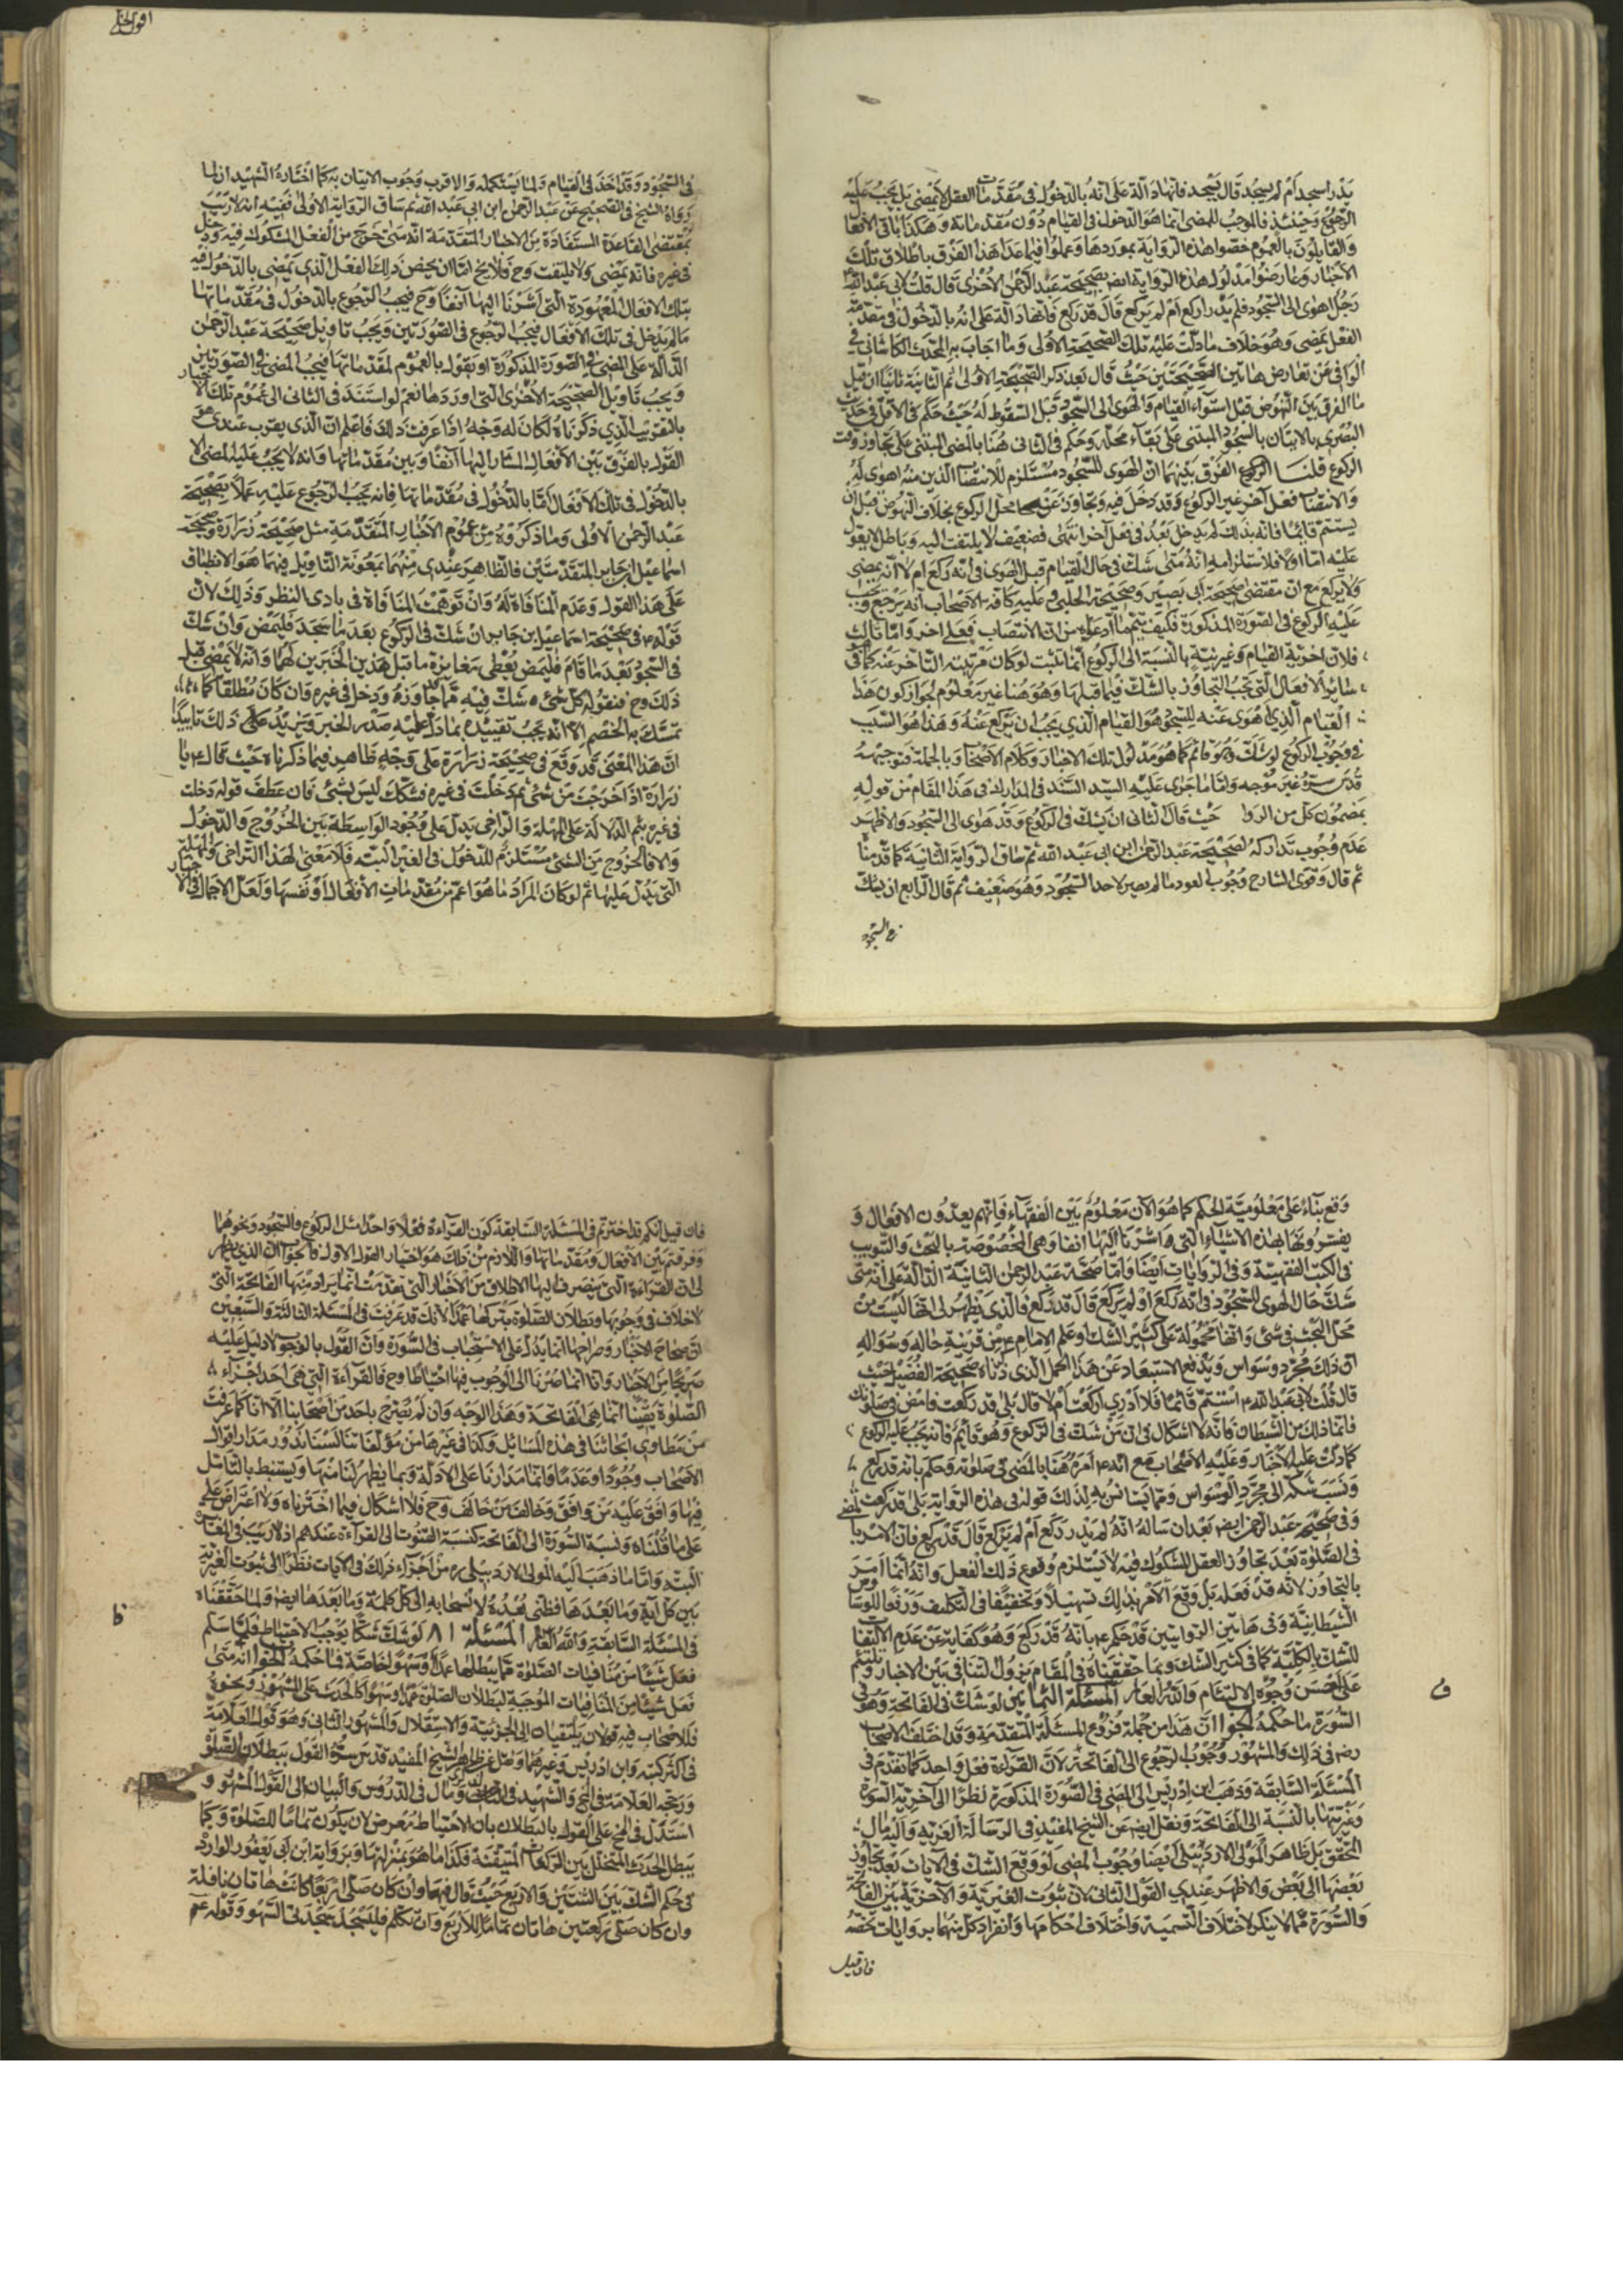 يدر اسجد أم لم يسجد قال يسجد فانها دالة على انه بالدخول في مقدمات الفعل لا يمضي بل يجب عليه
الرجوع وحينئذ فالموجب للمضي انما هو الدخول في القيام دون مقدماته وهكذا باقي الافعال
والقايلون بالعموم خصوا هذه الرواية بموردها وعملوا فيما عدا هذا الفرد باطلاق تلك
الاخبار وعارضوا مدلول هذه الرواية ايض بصحيحة عبد الرحمن الاخرى قال قلت لابي عبد الله ع
رجل اهوى الى السجود فلم يدر اركع أم لم يركع قال قد ركع فانها دالة على انه بالدخول في مقدمة
الفعل يمضي وهو خلاف ما دلت عليه تلك الصحيحة الاولى وما اجاب به المحدث الكاشاني في
الوافي عن تعارض هاتين الصحيحتين حيث قال بعد ذكر الصحيحة الاولى ثم الثانية ثانيا ان قيل
ما الفرق بين النهوض قبل استواء القيام والهوى الى السجود قبل السقوط له حيث حكم في الاول في حديث
البصري بالاتيان بالسجود المبتني على بقاء محله وحكم في الثاني هنا بالمضي المبتني على تجاوز وقت
الركوع قلنا الفرق بينهما ان الهوى للسجود مستلزم للانتصاب الذي منه اهوى له
والانتصاب فعل آخر غير الركوع وقد دخل فيه وتجاوز عن محل الركوع بخلاف النهوض قبل ان
يستتم قائما فانه بذلك لم يدخل بعد في فعل آخر انتهى فضعيف لا يلتفت اليه وباطل لا يعول
عليه اما اولا فلاستلزامه انه متى شك في حال القيام قبل الهوى في انه ركع ام لا انه يمضي
ولا يركع مع ان مقتضى صحيحة ابي بصير وصحيحة الحلبي وعليه كافة الاصحاب انه يرجع ويجب
عليه الركوع في الصورة المذكورة فكيف يتم ما ادعاه من ان الانتصاب فعل اخر واما ثانيا
فلان اخروية القيام وغيريته بالنسبة الى الركوع انما تثبت لو كان مرتبته التاخر عنه كما في
سائر الافعال التي يجب التجاوز بالشك فيما قبلها وهو هنا غير معلوم لجواز كون هذا
القيام الذي هوى عنه للسجود هو القيام الذي يجب ان يركع عنه وهذا هو السبب
في وجوب الركوع لو شك وهو قائم كما هو مدلول تلك الاخبار وكلام الاصحاب وبالجملة فتوجيهه
قدس سره غير موجه واما ما جرى عليه السيد السند في المدارك في هذا المقام من قوله
بمضمون كل من الروا حيث قال الثاني ان يشك في الركوع وقد هوى الى السجود والاظهر
عدم وجوب تداركه لصحيحة عبد الرحمن ابن ابي عبد الله ثم ساق الرواية الثانية كما قدمنا
ثم قال وقوى الشارح وجوب العود ما لم يصر لاحد السجود وهو ضعيف ثم قال الرابع ان يشك
في السجود
في السجود وقد اخذ في القيام ولما يستكمله والاقرب وجوب الاتيان به كما اختاره الشهيدان لما
رواه الشيخ في الصحيح عن عبد الرحمن ابن ابي عبد الله ثم ساق الرواية الاولى ففيه انه لا ريب
بمقتضى القاعدة المستفادة من الاخبار المتقدمة انه متى خرج من الفعل المشكوك فيه ودخل
في غيره فانه يمضي ولا يلتفت وح فلا يخ اما ان يخص ذلك الفعل الذي يمضي بالدخول فيه
بتلك الافعال المعهودة التي اشرنا اليها آنفا وح فيجب الرجوع بالدخول في مقدماتها
ما لم يدخل في تلك الافعال فيجب الرجوع في الصورتين ويجب تاويل صحيحة عبد الرحمن
الدالة على المضي في الصورة المذكورة او بقول بالعموم لمقدماتها فيجب المضي في الصورتين
ويجب تاويل الصحيحة الاخرى التي اوردها نعم لو استند في الثاني الى عموم تلك الاخبار
بالتقريب الذي ذكرناه لكان له وجه اذا عرفت ذلك فاعلم ان الذي يقرب عندي هو
القول بالفرق بين الافعال المشار اليها آنفا وبين مقدماتها وانه لا يجب عليه المضي الا
بالدخول في تلك الافعال اما بالدخول في مقدماتها فانه يجب الرجوع عليه عملا بصحيحة
عبد الرحمن الاولى وما ذكروه من عموم الاخبار المتقدمة مثل صحيحة زرارة وصحيحة
اسماعيل ابن جابر المتقدمتين فالظاهر عندي منهما بمعونة التاويل فيهما هو الانطباق
على هذا القول وعدم المنافاة له وان توهمت المنافاة في بادي النظر وذلك لان
قوله ع في صحيحة اسماعيل ابن جابر ان شك في الركوع بعد ما سجد فليمض وان شك
في السجود بعد ما قام فليمض يعطي مغايرة ما قبل هذين الخبرين لهما وانه لا يمضي قبل
ذلك وح فنقوله كل شيء شك فيه مما جاوزه ودخل في غيره فان كان مطلقا كما
تمسك به الخصم الا انه يجب تقييده بما دل عليه صدر الخبر ويزيد على ذلك تاييدا
ان هذا المعنى قد وقع في صحيحة زرارة على وجه ظاهر فيما ذكرناه حيث قال ع يا
زرارة اذا خرجت من شيء ثم دخلت في غيره فشكك ليس بشيء فان عطف قوله دخلت
في غيره بثم الدالة على المهلة والتراخي يدل على وجود الواسطة بين الخروج والدخول
والا فالخروج من الشئ مستلزم للدخول في الغير البتة فلا معنى لهذا التراخي والمهلة
التي يدل عليها ثم لو كان المراد ما هو اعم من مقدمات الافعال او نفسها ولعل الاجمال في الاخبار
وقع بناء على معلومية الحكم كما هو الآن معلوم بين الفقهاء فانهم يعدون الافعال و
يفسرونها بهذه الاشياء التي اشرنا اليها انفا وهي المخصوصة بالبحث والتبويب
في الكتب الفقهية وفي الروايات ايضا واما صحة عبد الرحمن الثانية الدالة على انه متى
شك حال الهوى للسجود في انه ركع او لم يركع قال قد ركع فالذي يظهر لي انها ليست من
محل البحث في شئ وانها محمولة على كثير الشك وعلم الامام ع من قرينة حاله وسؤاله
ان ذلك مجرد وسواس ويدفع الاستبعاد عن هذا الحمل الذي ذكرناه صحيحة الفضيل حيث
قال قلت لابي عبد الله ع استتم قائما فلا ادري اركعت ام لا قال بلى قد ركعت فامض في صلوتك
فانما ذلك من الشيطان فانه لا اشكال في ان من شك في الركوع وهو قائم فانه يجب عليه الركوع
كما دلت عليه الاخبار وعليه الاصحاب مع انه ع امره هنا بالمضي في صلوته وحكم بانه قد ركع
ونسب شكه الى مجرد الوسواس ومما يستانس به لذلك قوله في هذه الرواية بلى قد ركعت
وفي صحيحة عبد الرحمن ايض بعد ان ساله انه لم يدر ركع أم لم يركع قال قد ركع فان الامر بالمضي
في الصلوة بعد تجاوز الفعل المشكوك فيه لا يستلزم وقوع ذلك الفعل وانه انما امر
بالتجاوز لانه قد فعله بل وقع الامر بذلك تسهيلا وتخفيفا في التكليف ورفعا للوساوس
الشيطانية وفي هاتين الروايتين قد حكم ع بانه قد ركع وهو كناية عن عدم الالتفات
للشك بالكلية كما في كثير الشك وبما حققناه في المقام يزول التنافي بين الاخبار وتلتئم
على احسن وجوه الالتيام والله العالم المسئلة الثمانين لو شك في الفاتحة وهو في
السورة ما حكمه الجواب ان هذا من جملة فروع المسئلة المتقدمة وقد اختلف الاصحاب
رضه في ذلك والمشهور وجوب الرجوع الى الفاتحة لان القراءة فعل واحد كما تقدم في
المسئلة السابقة وذهب ابن ادريس الى المضي في الصورة المذكورة نظرا الى آخرية السورة
وغيريتها بالنسبة الى الفاتحة ونقل ايض عن الشيخ المفيد في الرسالة العزية واليه مال
المحقق بل ظاهر المولى الاردبيلي ايضا وجوب المضي لو وقع الشك في الآيات بعد تجاوز
بعضها الى بعض والاظهر عندي القول الثاني لان ثبوت الغيرية والاخرية بين الفاتحة
والسورة مما لا ينكر لاختلاف التسمية واختلاف احكامها وانفراد كل منهما بروايات تخصه
فان قيل
فان قيل انكم قد اخترتم في المسئلة السابقة كون القراءة فعلا واحدا مثل الركوع والسجود ونحوهما
وفرقتم بين الافعال ومقدماتها واللازم من ذلك هو اختيار القول الاول فالجواب ان الذي يظهر
لي ان القراءة التي ينصرف اليها الاطلاق من الاخبار التي تقدمت انما يراد منها الفاتحة التي
لا خلاف في وجوبها وبطلان الصلوة بتركها عمدا لانك قد عرفت في المسئلة الثالثة والسبعين
ان صحاح الاخبار وصراحها انما يدل على الاستحباب في السورة وان القول بالوجوب لا دليل عليه
صريحا من الاخبار وانا انما صرنا الى الوجوب فيها احتياطا وح فالقراءة التي هي احد اجزاء
الصلوة يقينا انما هي الفاتحة وهذا الوجه وان لم يصرح به احد من اصحابنا الا انا كما عرفت
من مطاوي ابحاثنا في هذه المسائل وكذا في غيرها من مؤلفاتنا لسنا ندور مدار اقوال
الاصحاب وجودا وعدما وانما مدارنا على الادلة وبما يظهر لنا منها ويستنبط بالتامل
فيها وافق عليه من وافق وخالف من خالف وح فلا اشكال فيما اخترناه ولا اعتراض على
على ما قلناه ونسبة السورة الى الفاتحة كنسبة القنوت الى القراءة عندكم اذ لا ريب في المغايرة
البتة واما ما ذهب اليه المولى الاردبيلي ره من اجزاء ذلك في الآيات نظرا الى ثبوت الغيرية
بين كل آية وما بعدها فظني بعده لانسحابه الى كل كلمة وما بعدها ايض ولما حققناه
في المسئلة السابقة والله العالم المسئلة ٨١ لو شك شكا يوجب الاحتياط فلما سلم
فعل شيئا من منافيات الصلوة مما يبطلها عمدا وسهوا خاصة فما حكمه الجواب انه متى
فعل شيئا من المنافيات الموجبة لبطلان الصلوة عمدا وسهوا كالحدث على المشهور ونحوه
فللاصحاب فيه قولان يلتفتان الى الجزئية والاستقلال والمشهور الثاني وهو قول العلامة
في اكثر كتبه وابن ادريس وغيرهما ونقل عن ظاهر الشيخ المفيد قدس سره القول ببطلان الصلوة
ورجحه العلامة في المخ والشهيد في الذكرى ومال في الدروس والبيان الى القول المشهور و
استدل في المخ على القول بالبطلان بان الاحتياط معرض لان يكون تماما للصلوة وكما
يبطل الحدث المتخلل بين الركعات المتيقنة فكذا ما هو بمنزلتها وبرواية ابن ابي يعفور الواردة
في حكم الشك بين الثنتين والاربع حيث قال فيها وان كان صلى اربعا كانت هاتان نافلة
وان كان صلى ركعتين هاتان تمام الاربع وان تكلم فليسجد سجدتي السهو وقوله ع